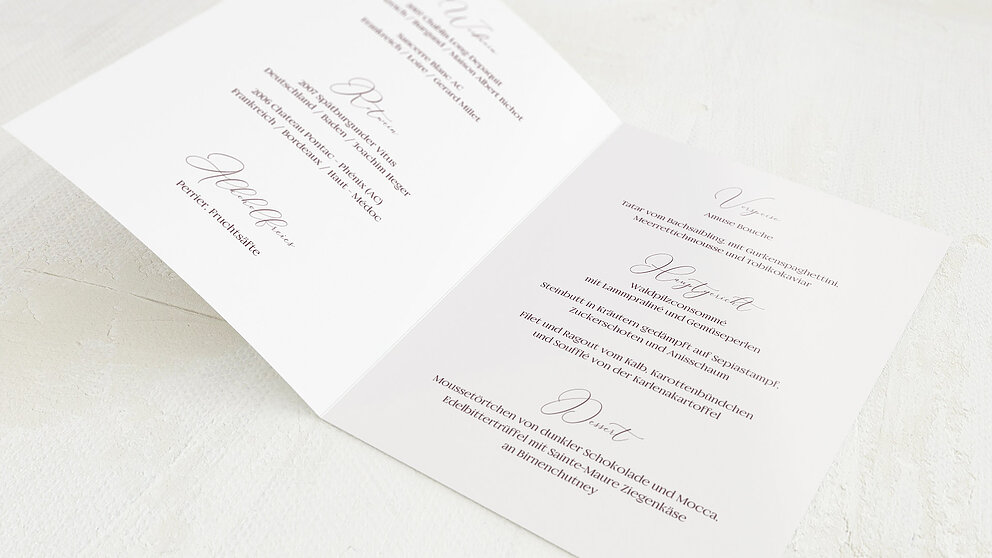 Frankreich / Burgund / Maison Albert Bichot
Sancerre Blanc AC
Frankreich / Loire / Gerard Millet
Rotwein
2007 Spätburgunder Vitus
Deutschland / Baden / Joachim Heger
2006 Chateau Pontac - Phénix (AC)
Frankreich / Bordeaux / Haut - Médoc
Alkoholfreies
Perrier, Fruchtsäfte
Vorspeise
Amuse Bouche
Tatar vom Bachsaibling, mit Gurkenspaghettini,
Meerrettichmousse und Tobikokaviar
Hauptgericht
Waldpilzconsommé
mit Lammpraliné und Gemüseperlen
Steinbutt in Kräutern gedämpft auf Sepiastampf,
Zuckerschoten und Anisschaum
Filet und Ragout vom Kalb, Karottenbündchen
und Soufflé von der Karlenakartoffel
Dessert
Moussetörtchen von dunkler Schokolade und Mocca,
Edelbittertrüffel mit Sainte-Maure Ziegenkäse
an Birnenchutney